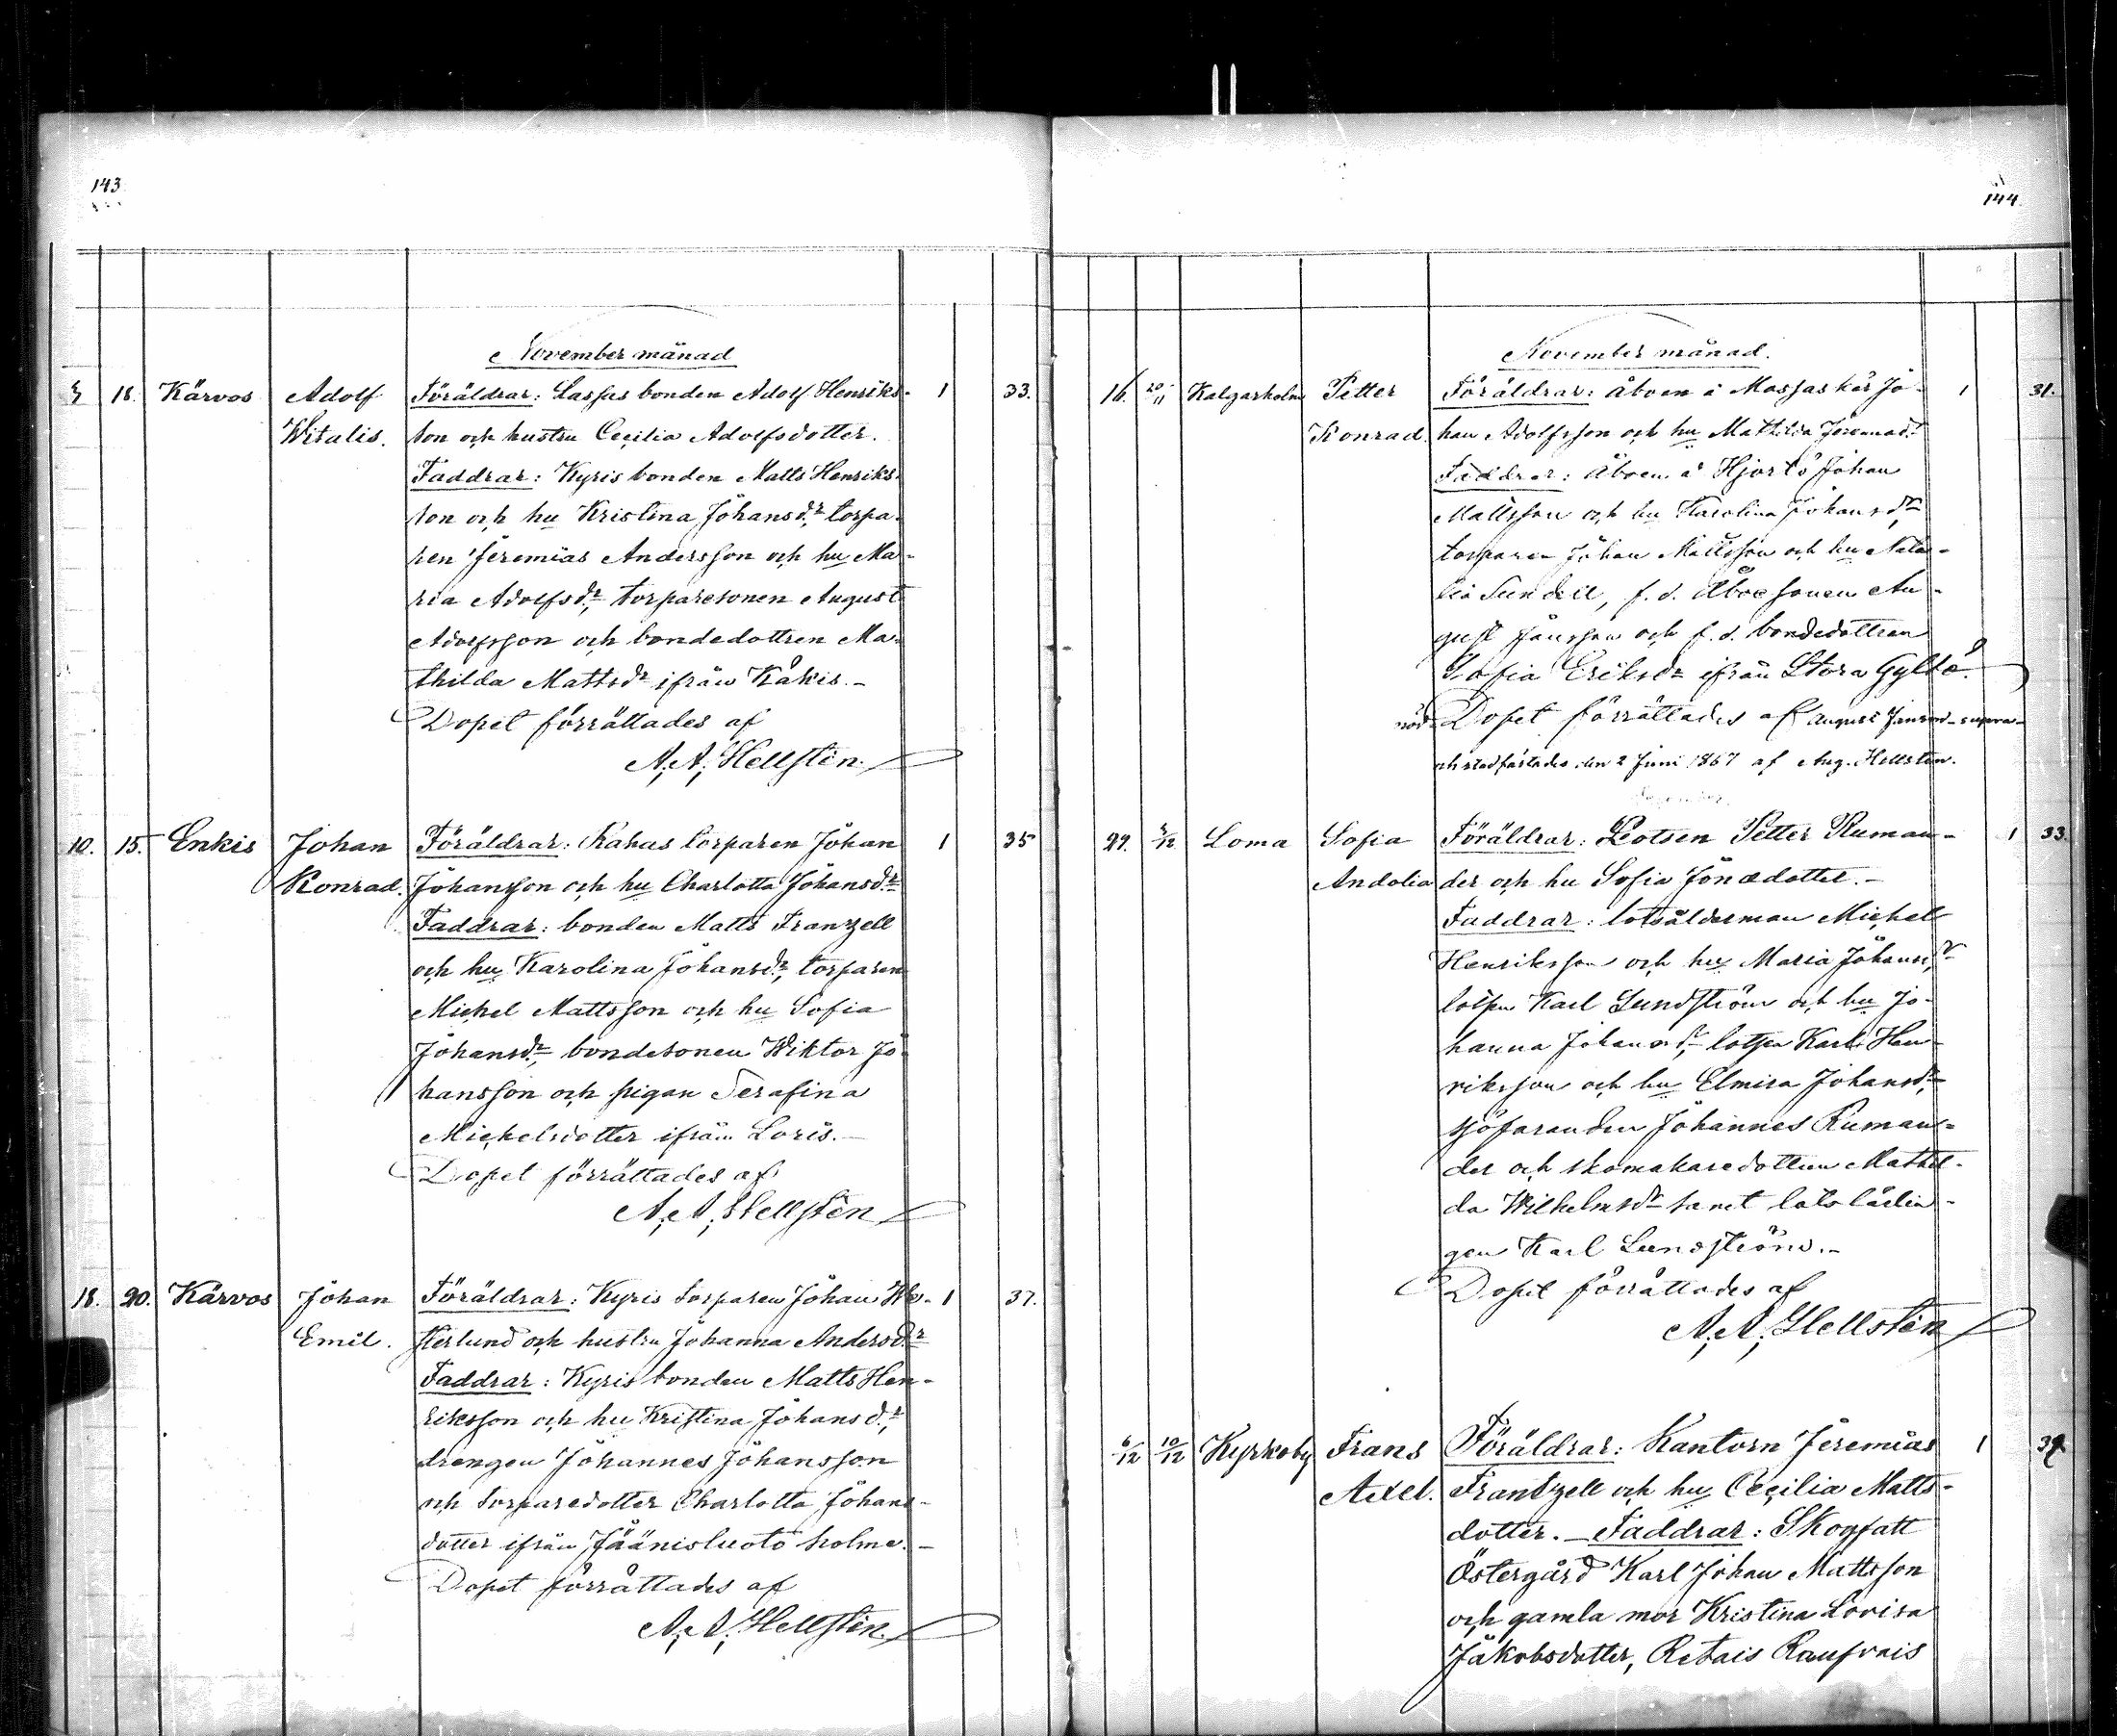 143
November månad
18. Kärvos Adolf Föräldrar: Lassas bonden Adolf Henriks- 1 33.
Witalis. son och hustru Cecilia Adolfsdotter.
Faddrar: Kyris bonden Matts Henriks-
son och hu Kristina Johansdr, torpa-
ren Jeremias Andersson och hu Ma-
ria Adolfsdr, torparesonen August
Adolfsson och bondedottren Ma-
thilda Mattsdr ifrån Kåkis.-
Dopet förrättades af
A. A. Hellstén.
10. 15. Enkis Johan Föräldrar: Rahas torparen Johan 1 35
Konrad. Johansson och hu Charlotta Johansdr
Faddrar: bonden Matts Franzell
och hu Karolina Johansdr, torparen
Michel Mattsson och hu Sofia
Johansdr, bondesonen Wiktor Jo-
hansson och pigan Serafina
Michelsdotter ifrån Loris.-
Dopet förrättades af
A. A. Hellstén
18. 20. Kärvos Johan Föräldrar: Kyris torparen Johan We- 1 37.
Emil. sterlund och hustru Johanna Andersdr
Faddrar: Kyris bonden Matts Hen-
riksson och hu Kristina Johansdr,
drengen Johannes Johansson
och torparedotter Charlotta Johans-
dotter ifrån Jäänisluoto holme.-
Dopet förrättades af
A. A. Hellstén.
144
November månad.
16. 20/11 Kalgarholm Petter Föräldrar: åboen å Massaskär Jo- 1 31.
Konrad. han Adolfsson och hu Mathilda
Faddrar: Åboen å Hjortö Johan
Mattsson och hu Karolina Johansdr
torparen Johan Mattsson och hu Nata-
lia Sundell, f. d. Åboesonen Au-
gust Jansson och f. d. bondedottren
Sofia Eriksdr ifrån Stora Gyltö.
nöd Dopet förrättades af August Janson - supra-
och stadfästades den 2 Juni 1867 af Aug. Hellsten.
29. /12 Loma Sofia Föräldrar: Lotsen Petter Ruman- 1 33.
Andolia der och hu Sofia Jonædotter.-
Faddrar: lotsålderman Michel
Henriksson och hu Maria Johansdr
lotsen Karl Lundström och hu Jo-
hanna Johansdr, lotsen Karl Hen-
riksson och hu Elmira Johansdr
sjöfaranden Johannes Ruman-
der och skomakaredottren Mathil-
da Wilhelmsdr samt lotslärlin-
gen Karl Lundström.-
Dopet förrättades af
A. A. Hellstén
6/12 10/12 Kyrkoby Frans Föräldrar: Kantorn Jeremias 1 39
Axel. Frantzell och hu Cecilia Matts-
dotter. - Faddrar: Skogfatt
Östergård Karl Johan Mattsson
och gamla mor Kristina Lovisa
Jakobsdotter, Retais